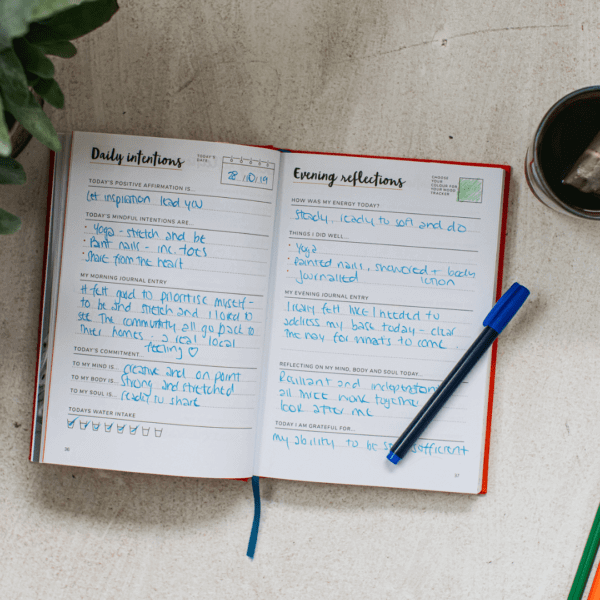 Daily intentions
TODAY'S DATE:
28/10/19
TODAY'S POSITIVE AFFIRMATION IS...
Let inspiration lead you
TODAY'S MINDFUL INTENTIONS ARE...
• Yoga - stretch and be
• Paint nails - inc. toes
• Share from the heart
MY MORNING JOURNAL ENTRY
It felt good to prioritise myself -
to be and stretch and I loved to
see the community all go back to
their homes - a real local
feeling ♡
TODAY'S COMMITMENT...
TO MY MIND IS... creative and on point
TO MY BODY IS... strong and stretched
TO MY SOUL IS... ready to share
TODAYS WATER INTAKE
36
Evening reflections
CHOOSE YOUR COLOUR FOR YOUR MOOD TRACKER
HOW WAS MY ENERGY TODAY?
Steady, ready to soft and do
THINGS I DID WELL...
• Yoga
• painted nails, showered + body lotion
• journalled
MY EVENING JOURNAL ENTRY
I really felt like I needed to
address my back today - clear
the way for what's to come
REFLECTING ON MY MIND, BODY AND SOUL TODAY...
and
all work together
look after me
TODAY I AM GRATEFUL FOR...
my ability to be
37